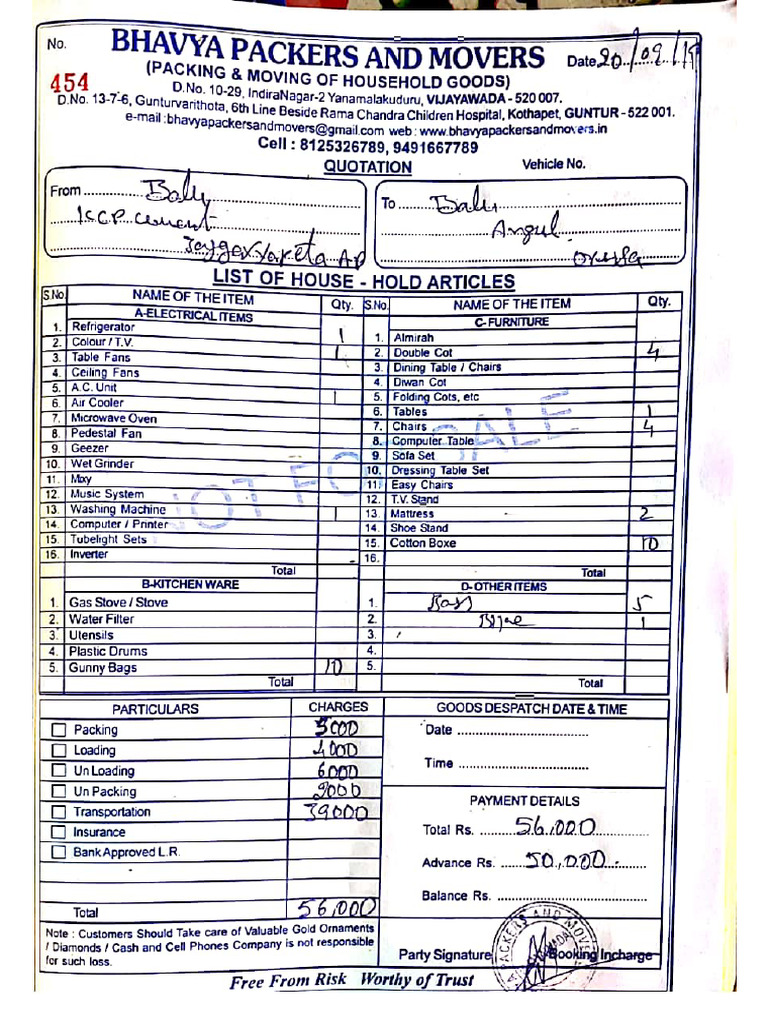 No.
454
BHAVYA PACKERS AND MOVERS
Date 20/09/19
(PACKING & MOVING OF HOUSEHOLD GOODS)
D.No. 10-29, IndiraNagar-2 Yanamalakuduru, VIJAYAWADA - 520 007.
D.No. 13-7-6, Gunturvarithota, 6th Line Beside Rama Chandra Children Hospital, Kothapet, GUNTUR - 522 001.
e-mail :bhavyapackersandmovers@gmail.com web : www.bhavyapackersandmovers.in
Cell : 8125326789, 9491667789
QUOTATION Vehicle No.
From Balu
KCP cement
AP
To Balu
Angul
Orissa
LIST OF HOUSE - HOLD ARTICLES
S.No. NAME OF THE ITEM Qty.
A-ELECTRICAL ITEMS
1. Refrigerator 1
2. Colour / T.V. 1
3. Table Fans
4. Ceiling Fans
5. A.C. Unit 1
6. Air Cooler
7. Microwave Oven
8. Pedestal Fan
9. Geezer
10. Wet Grinder
11. Mixy
12. Music System
13. Washing Machine 1
14. Computer / Printer
15. Tubelight Sets
16. Inverter
Total
B-KITCHEN WARE
1. Gas Stove / Stove
2. Water Filter
3. Utensils
4. Plastic Drums
5. Gunny Bags 10
Total
S.No. NAME OF THE ITEM Qty.
C-FURNITURE
1. Almirah
2. Double Cot 4
3. Dining Table / Chairs
4. Diwan Cot
5. Folding Cots, etc
6. Tables 1
7. Chairs 4
8. Computer Table
9. Sofa Set
10. Dressing Table Set
11. Easy Chairs
12. T.V. Stand
13. Mattress 2
14. Shoe Stand
15. Cotton Boxe 10
16.
Total
D-OTHER ITEMS
1. 5
2. 1
3.
4.
5.
Total
NOT FOR SALE
PARTICULARS CHARGES
Packing 5000
Loading 4000
Un Loading 6000
Un Packing 2000
Transportation 39000
Insurance
Bank Approved L.R.
Total 56,000
GOODS DESPATCH DATE & TIME
Date
Time
PAYMENT DETAILS
Total Rs. 56,000
Advance Rs. 50,000
Balance Rs.
Note : Customers Should Take care of Valuable Gold Ornaments
/ Diamonds / Cash and Cell Phones Company is not responsible
for such loss.
Party Signature Booking Incharge
PACKERS AND MOVERS
Free From Risk Worthy of Trust